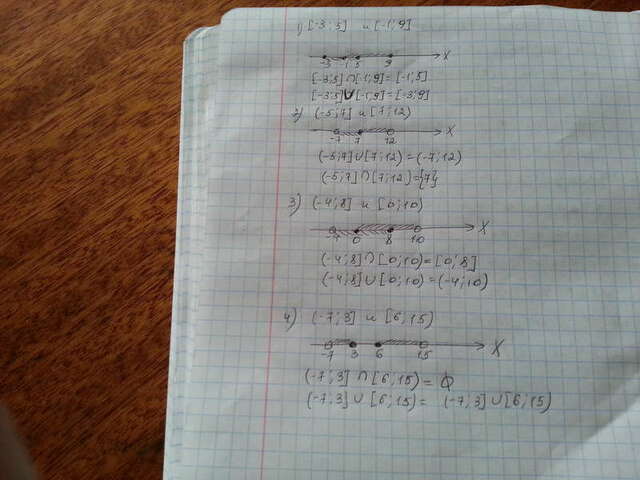 1) [-3; 5] и [-1; 9]
-3 -1 5 9 X
[-3;5]∩[-1;9]=[-1;5]
[-3;5]∪[-1;9]=[-3;9]
2) (-5;7] и [7;12)
-7 7 12 X
(-5;7]∪[7;12)=(-7;12)
(-5;7]∩[7;12)={7}
3) (-4;8] и [0;10)
-7 0 8 10 X
(-4;8]∩[0;10)=[0;8]
(-4;8]∪[0;10)=(-4;10)
4) (-7;3] и [6;15)
-7 3 6 15 X
(-7;3]∩[6;15)=∅
(-7;3]∪[6;15)= (-7;3]∪[6;15)